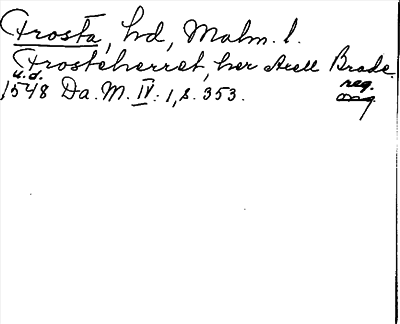 Frosta, hd, Malm. l.
Frosteherret, her Axell Brade.
u.d. reg.
1548 Da. M. IV: 1, s. 353. orig.